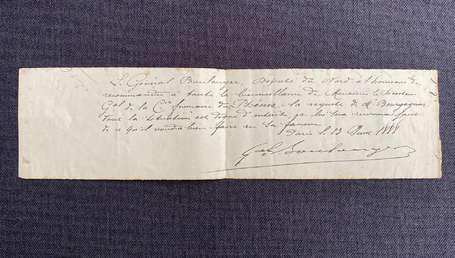 Le Général Boulanger, député du Nord a l'honneur de
recommander à toute la bienveillance de Monsieur le Directeur
Gal de la Cie française du Phénix, la requête de M. Bourgagnon
dont la situation est digne d'intérêt
de ce qu'il voudra bien faire en sa faveur.
Paris le 13 1888
Gal Boulanger